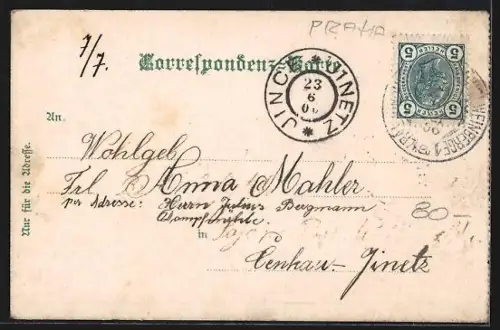 PRAHA
7/7.
Correspondenz-Karte
JINCE * JINETZ *
23
6
06
5 5
5 5
WEINBERGE 1
An
Wohlgeb
Frl Anna Mahler
per Adresse: Herrn Julius Bergmann
Dampfmühle
in
80-
Čenkau-Jinetz
Nur für die Adresse.